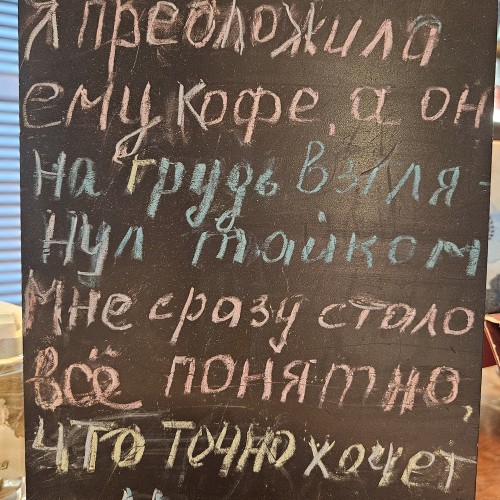 Я предложила
ему кофе, а он
на грудь взгля-
нул тайком
Мне сразу стало
всё понятно,
что точно хочет